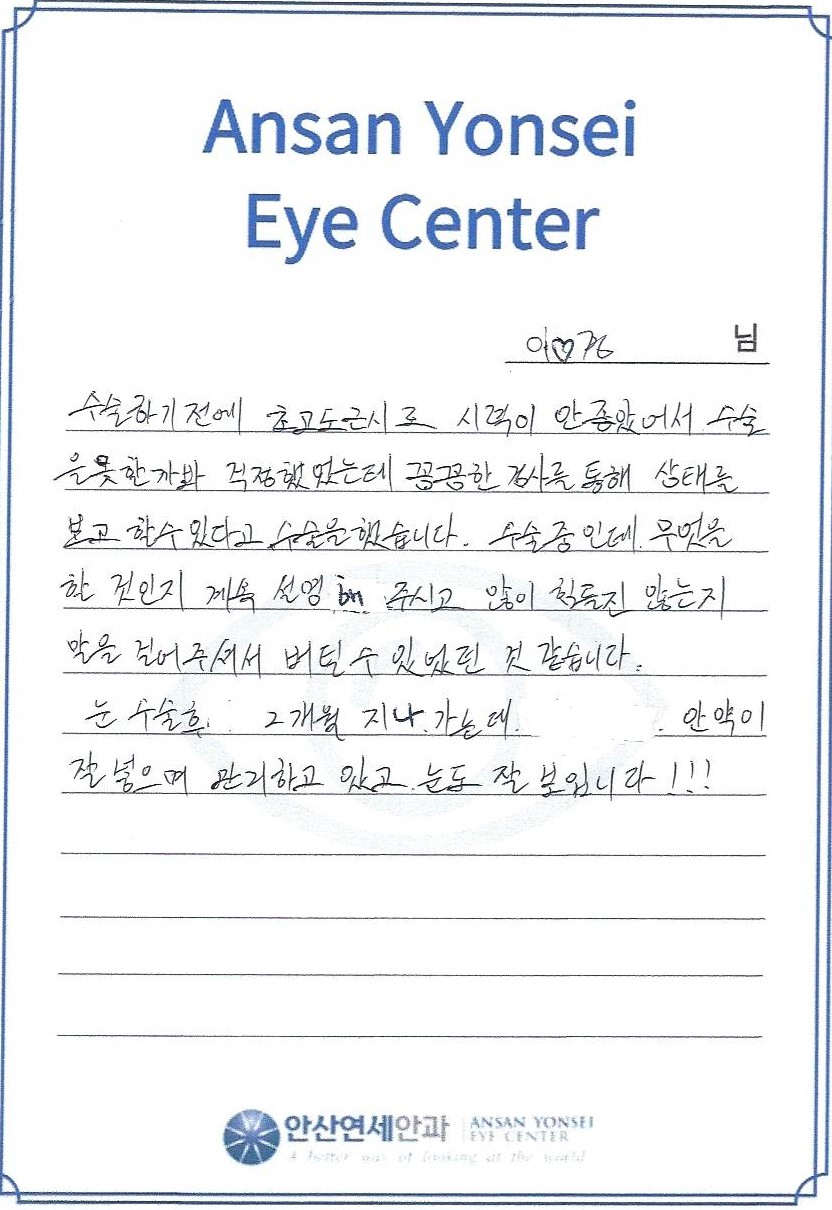 Ansan Yonsei
Eye Center
이♡경 님
수술하기전에 초고도근시로 시력이 안좋았어서 수술
을못한까봐 걱정했었는데 꼼꼼한 검사를 통해 상태를
보고 할수있다고 수술을했습니다. 수술중인데 무엇을
한 것인지 계속 설명해 주시고 많이 힘들진 않는지
말을 걸어주셔서 버틸수 있었던 것 같습니다.
눈 수술후. 2개월 지나가는데. 안약이
잘넣으며 관리하고 있고 눈도 잘 보입니다!!!
안산연세안과 ANSAN YONSEI
EYE CENTER
A better way of looking at the world